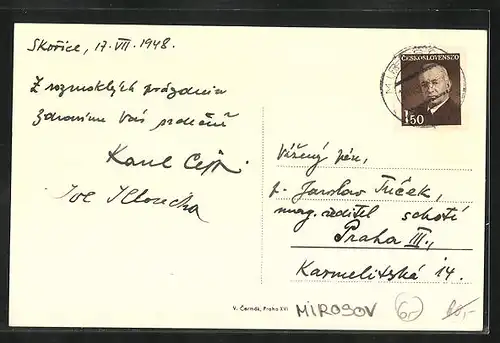 Skořice, 17. VII. 1948.
Z rozmoklých prázdnin
zdravím Vás srdečně
Karel
ČESKOSLOVENSKO
1.50
Vážený pán,
p. Jaroslav Tuček,
ředitel
Praha III.,
Karmelitská 14.
V. Černák, Praha XVI
MIROSOV
6,-